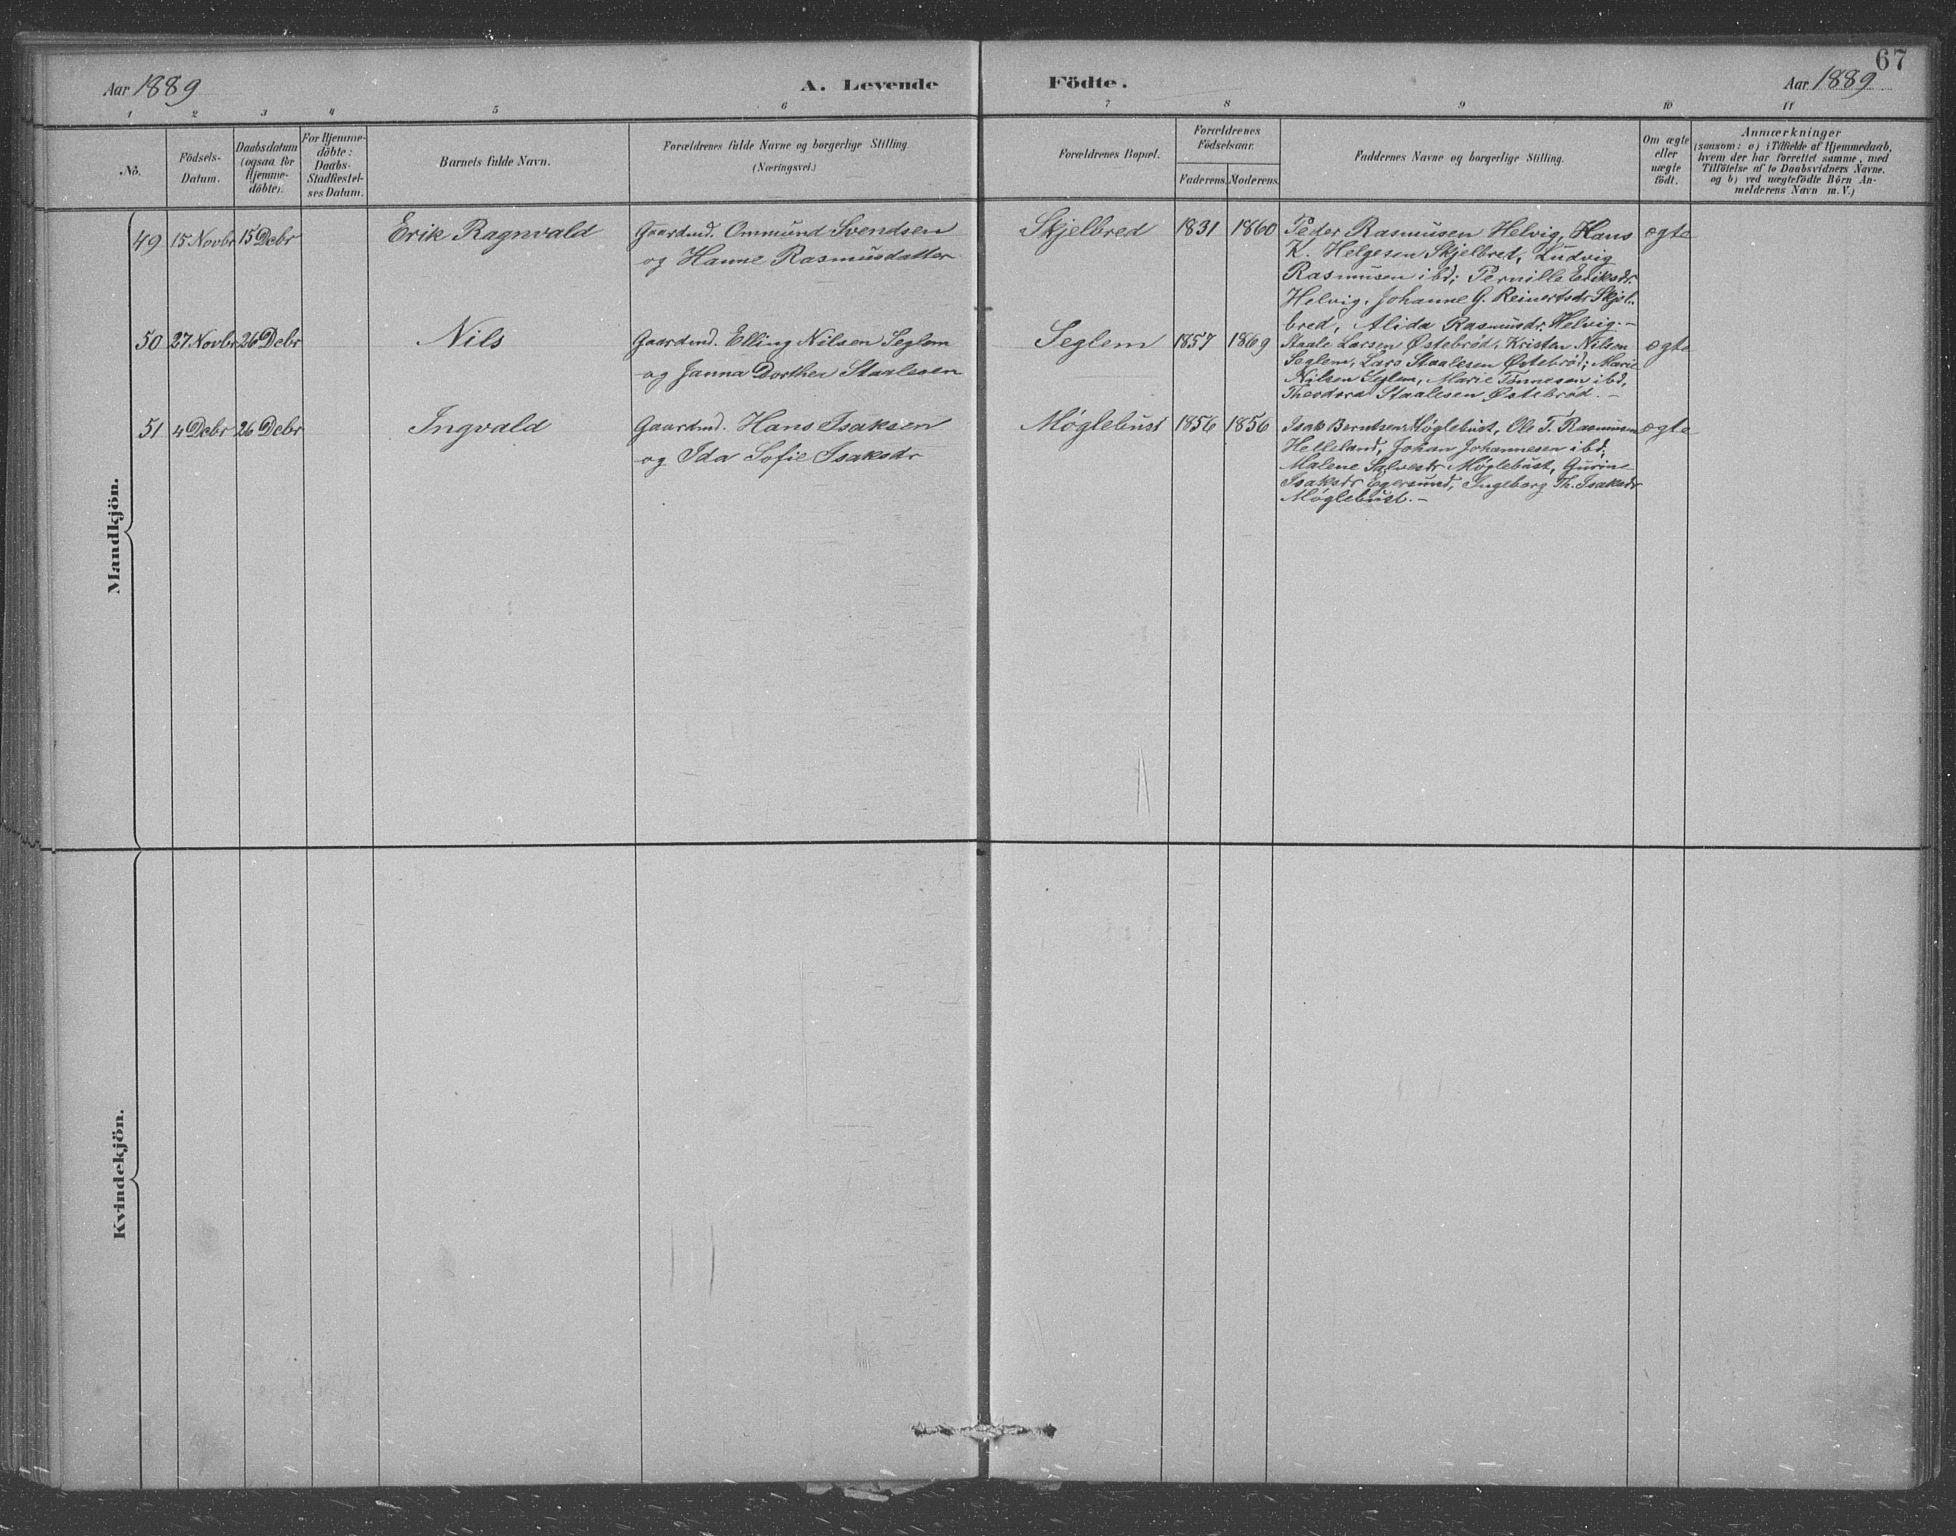 67
Aar 1889
A. Levende
Födte.
Aar 1889
1 2 3 4 5 6 7 8 9 10 11
No.
Födsels-
Datum.
Daabsdatum
(ogsaa for
Hjemme-
döbte).
For Hjemme-
döbte:
Daabs-
Stadfæstel-
ses Datum.
Barnets fulde Navn.
Forældrenes fulde Navne og borgerlige Stilling.
(Næringsvei.)
Forældrenes Bopæl.
Forældrenes
Födselsaar.
Faderens. Moderens.
Faddernes Navne og borgerlige Stilling.
Om ægte
eller
uægte
födt.
Anmærkninger
(saasom: a) i Tilfælde af Hjemmedaab,
hvem der har forrettet samme, med
Tilföielse af to Daabsvidners Navne.
og b) ved uægtefödte Börn An-
melderens Navn m. V.)
Mandkjön.
49 15 Novbr 15 Debr Erik Ragnvald Gaardmd. Ommund Svendsen Skjelbred 1831 1860 Peder Rasmusen Helvig, Hans ægte
og Hanne Rasmusdatter K. Helgesen Skjelbret, Ludvig
Rasmusen ibd; Pernille Eriksdr.
Helvig, Johanne G. Reinertsdr Skjel-
bred, Alida Rasmusdr. Helvig.-
50 27 Novbr 26 Debr Nils Gaardmd. Elling Nilsen Seglem Seglem 1857 1869 Staale Larsen Østebrød, Kristen Nilsen ægte
og Janna Dorthea Staalesen Seglem, Lars Staalesen Østebrød; Marie
Nilsen Seglem, Marie Tønnesen ibd,
Theodora Staalesen Østebrød.-
51 4 Debr 26 Debr Ingvald Gaardmd. Hans Isaksen Møglebust 1856 1856 Isak Berntsen Møglebust, Ole T. Rasmusen ægte
og Ida Sofie Isaksdr Helleland, Johan Johannesen ibd,
Malene Salvesdr Møglebust, Gurine
Isaksdr Egersund, Ingeborg Th. Isaksdr
Møglebust.-
Kvindekjön.